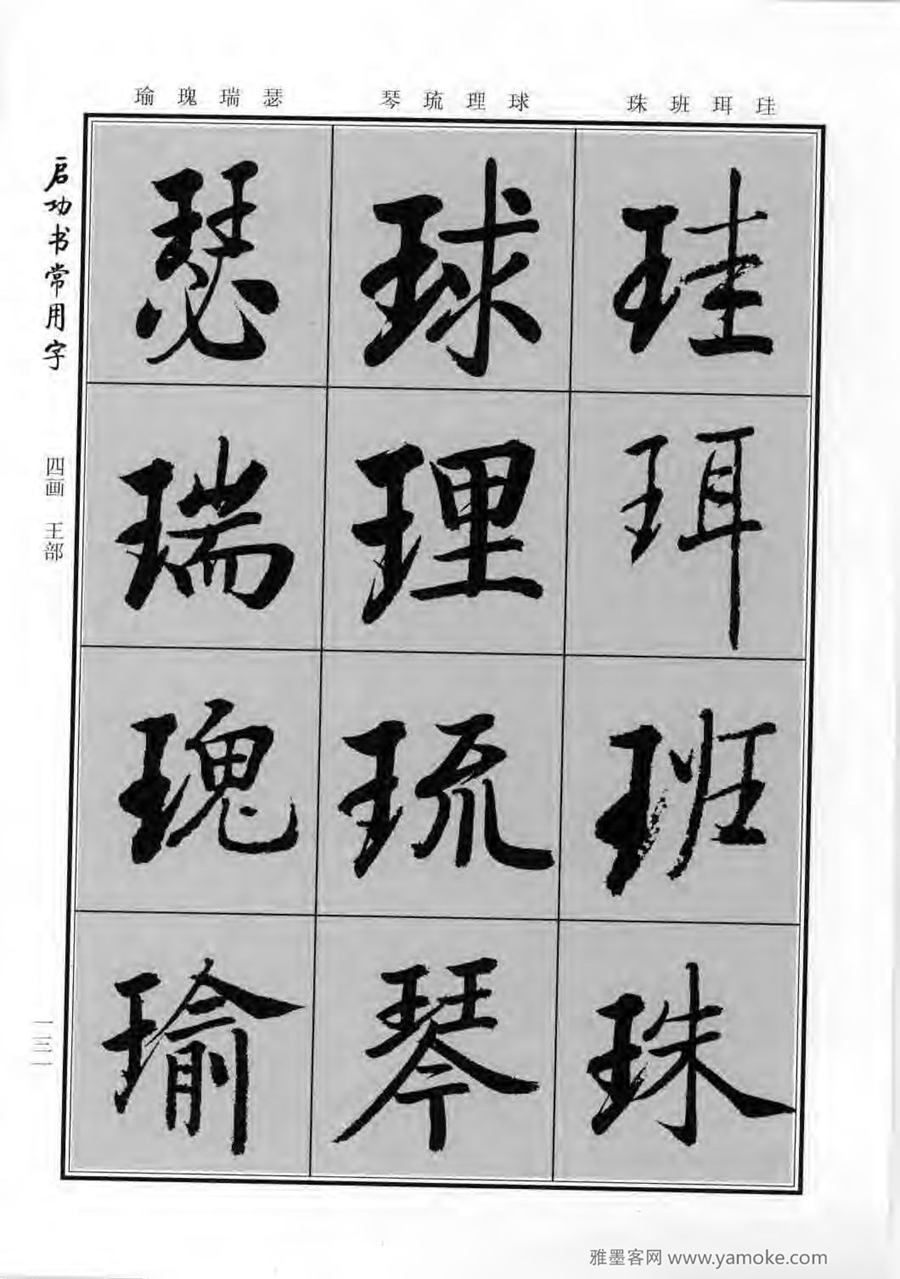 珪珥班珠
球理琉琴
瑟瑞瑰瑜
珪
珥
班
珠
球
理
琉
琴
瑟
瑞
瑰
瑜
启功书常用字
四画 王部
一三一
雅墨客网 www.yamoke.com